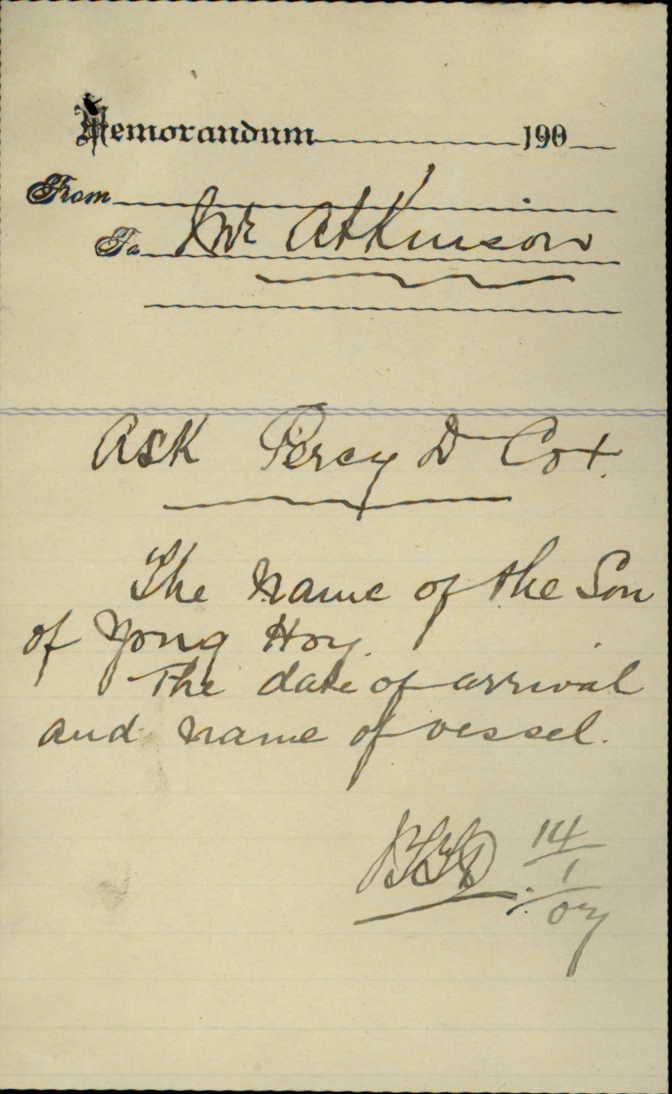 Memorandum 190
From
To Mr Atkinson
Ask Percy D Cox.
The name of the Son
of Yong Hoy.
The date of arrival
and name of vessel.
14
1
07